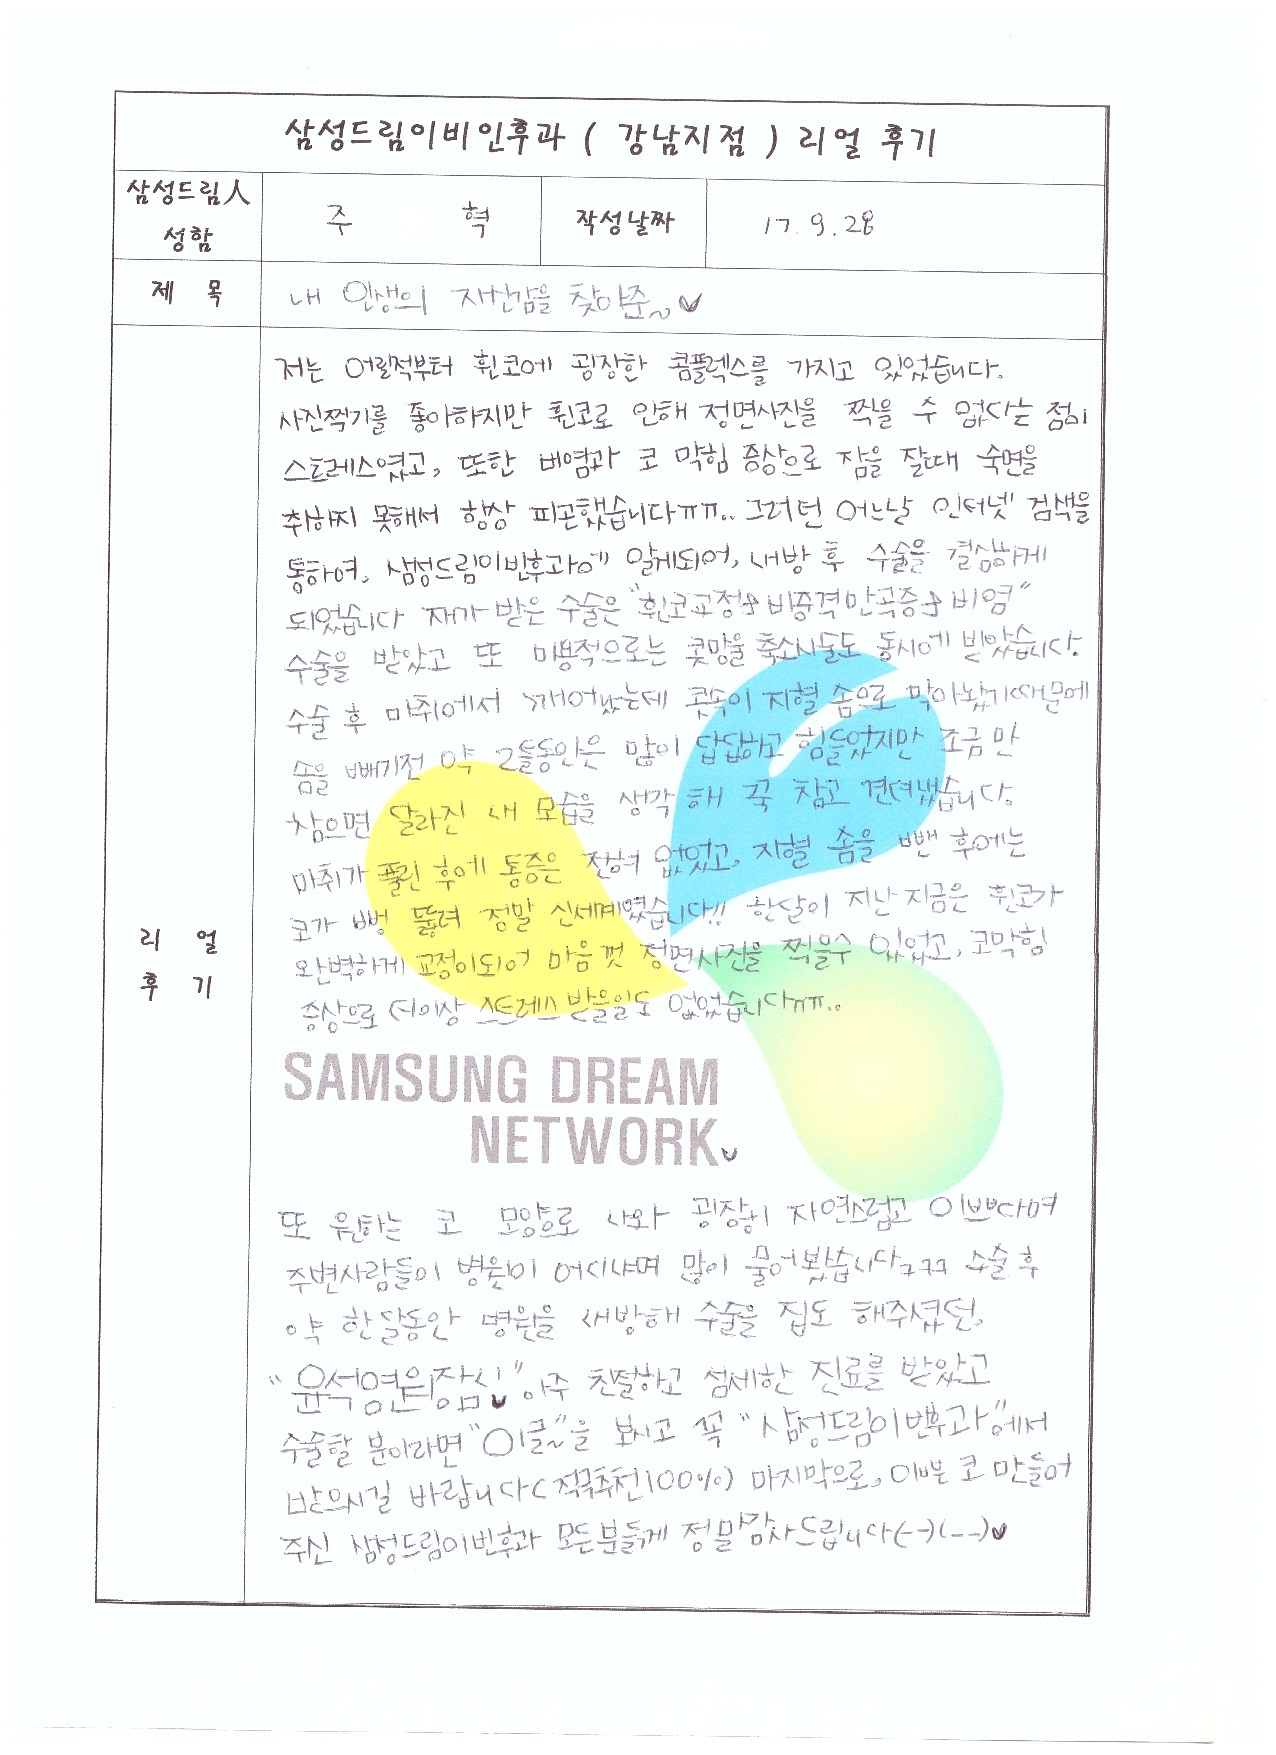 삼성드림이비인후과 ( 강남지점 ) 리얼 후기
삼성드림人
성함
주 혁
작성날짜
17. 9. 28
제 목
내 인생의 자신감을 찾아준~♥
리 얼
후 기
저는 어릴적부터 휜코에 굉장한 콤플렉스를 가지고 있었습니다.
사진찍기를 좋아하지만 휜코로 인해 정면사진을 찍을 수 없다는 점이
스트레스였고, 또한 비염과 코 막힘 증상으로 잠을 잘때 숙면을
취하지 못해서 항상 피곤했습니다ㅠㅠ.. 그러던 어느날 인터넷 검색을
통하여, 삼성드림이비인후과에 알게되어, 내방 후 수술을 결심하게
되었습니다 제가 받은 수술은 "휜코교정& 비중격만곡증& 비염"
수술을 받았고 또 미용적으로는 콧망울 축소시술도 동시에 받았습니다.
수술 후 마취에서 깨어났는데 콧속이 지혈 솜으로 막아놨기때문에
솜을 빼기전 약 2틀동안은 많이 답답하고 힘들었지만 조금만
참으면 달라진 내 모습을 생각해 꾹 참고 견뎌냈습니다.
마취가 풀린 후에 통증은 전혀 없었고, 지혈 솜을 뺀 후에는
코가 뻥 뚫려 정말 신세계였습니다!! 한달이 지난 지금은 휜코가
완벽하게 교정이되어 마음껏 정면사진을 찍을수 있었고, 코막힘
증상으로 더이상 스트레스 받을일도 없었습니다ㅠㅠ..
SAMSUNG DREAM
NETWORK
또 원하는 코 모양으로 나와 굉장히 자연스럽고 이쁘다며
주변사람들이 병원이 어디냐며 많이 물어봤습니다ㅋㅋㅋ 수술 후
약 한달동안 병원을 내방해 수술을 집도 해주셨던,
"윤석영원장님♥" 아주 친절하고 섬세한 진료를 받았고
수술할 분이라면 "이글~"을 보시고 꼭 "삼성드림이비인후과"에서
받으시길 바랍니다(적극추천100%) 마지막으로, 이쁜 코 만들어
주신 삼성드림이비인후과 모든분들께 정말감사드립니다(--)(__)♥